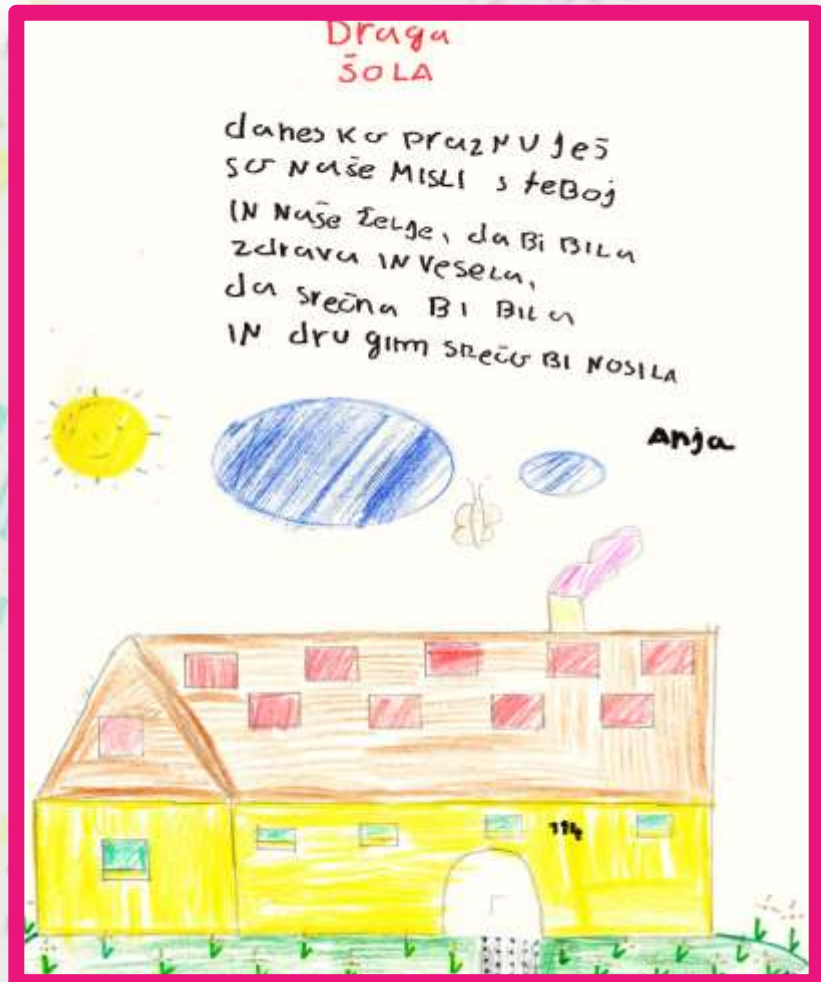 Draga
ŠOLA
danes ko praznuJeš
so Naše MISLI s teBoj
IN Naše želje, da Bi BILa
zdrava IN Vesela,
da srečna BI BILa
IN drugim srečo BI NOSILA
Anja
114